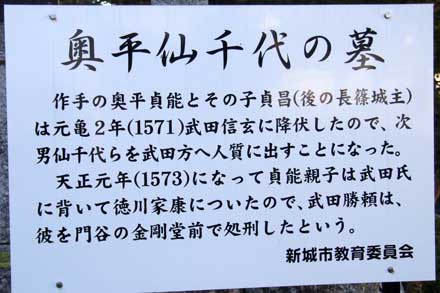 奥平仙千代の墓
作手の奥平貞能とその子貞昌(後の長篠城主)
は元亀2年(1571)武田信玄に降伏したので、次
男仙千代らを武田方へ人質に出すことになった。
天正元年(1573)になって貞能親子は武田氏
に背いて徳川家康についたので、武田勝頼は、
彼を門谷の金剛堂前で処刑したという。
新城市教育委員会